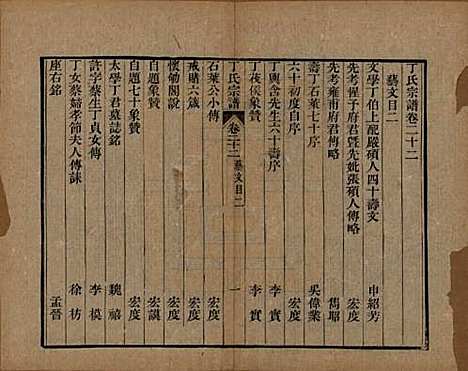 丁氏宗譜卷二十二
藝文目二
文學丁伯上配嚴碩人四十壽文 申紹芳
先考惺子府君暨先妣張碩人傳略 宏度
先考雍甫府君傳略 雋昭
壽丁石萊七十序 吳偉業
六十初度自序 宏度
丁輿舍先生六十壽序 李實
丁菽侯象贊 李實
丁氏宗譜 卷二十二 藝文目二 一
石萊公小傳 宏度
戒賭六箴 宏度
懷劬閣說 宏度
自題象贊 宏謨
自題二十象贊 宏度
太學丁君墓誌銘 魏禧
許字蔡生丁貞女傳 李模
丁女蔡婦孝節夫人傳誄 徐枋
座右銘 孟晉